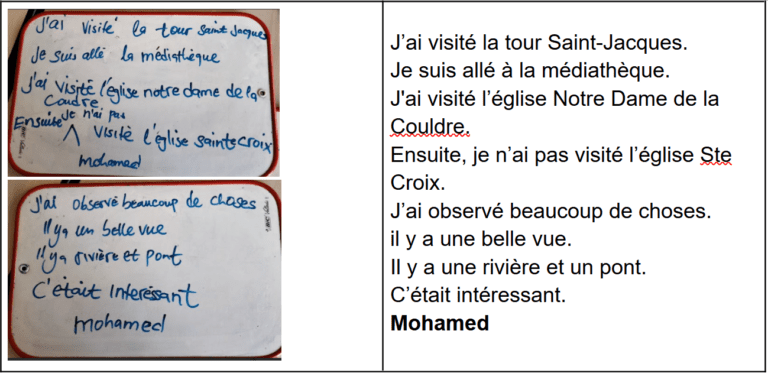 J'ai visité la tour saint Jacques
Je suis allé la médiathèque
J'ai visité l'église notre dame de la
Coudre
Ensuite Je n'ai pas visité l'église sainte croix
mohamed
J'ai observé beaucoup de choses
Il ya un belle vue
Il ya rivière et pont
C'était Interéssant
mohamed
J’ai visité la tour Saint-Jacques.
Je suis allé à la médiathèque.
J'ai visité l’église Notre Dame de la
Couldre.
Ensuite, je n’ai pas visité l’église Ste
Croix.
J’ai observé beaucoup de choses.
il y a une belle vue.
Il y a une rivière et un pont.
C’était intéressant.
Mohamed